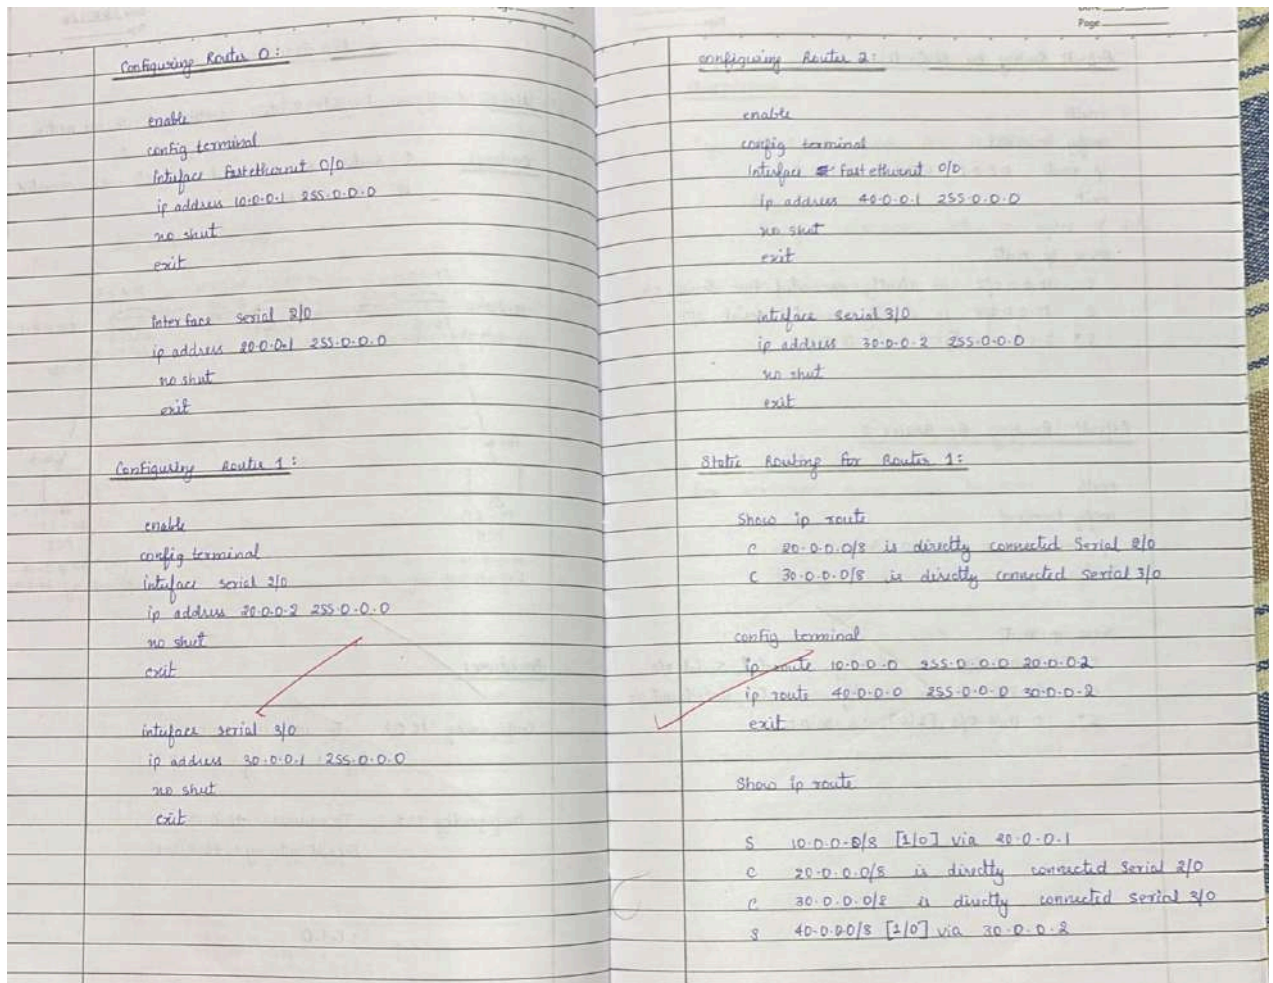 Configuring Router 0:
enable
config terminal
interface fastethernet 0/0
ip address 10.0.0.1 255.0.0.0
no shut
exit
interface serial 2/0
ip address 20.0.0.1 255.0.0.0
no shut
exit
Configuring Router 1:
enable
config terminal
interface serial 2/0
ip address 20.0.0.2 255.0.0.0
no shut
exit
interface serial 3/0
ip address 30.0.0.1 255.0.0.0
no shut
exit
Page
configuring Router 2:
enable
config terminal
Interface fastethernet 0/0
ip address 40.0.0.1 255.0.0.0
no shut
exit
interface serial 3/0
ip address 30.0.0.2 255.0.0.0
no shut
exit
Static Routing for Router 1:
Show ip route
C 20.0.0.0/8 is directly connected Serial 2/0
C 30.0.0.0/8 is directly connected Serial 3/0
config terminal
ip route 10.0.0.0 255.0.0.0 20.0.0.2
ip route 40.0.0.0 255.0.0.0 30.0.0.2
exit
Show ip route
S 10.0.0.0/8 [1/0] via 20.0.0.1
C 20.0.0.0/8 is directly connected Serial 2/0
C 30.0.0.0/8 is directly connected Serial 3/0
S 40.0.0.0/8 [1/0] via 30.0.0.2